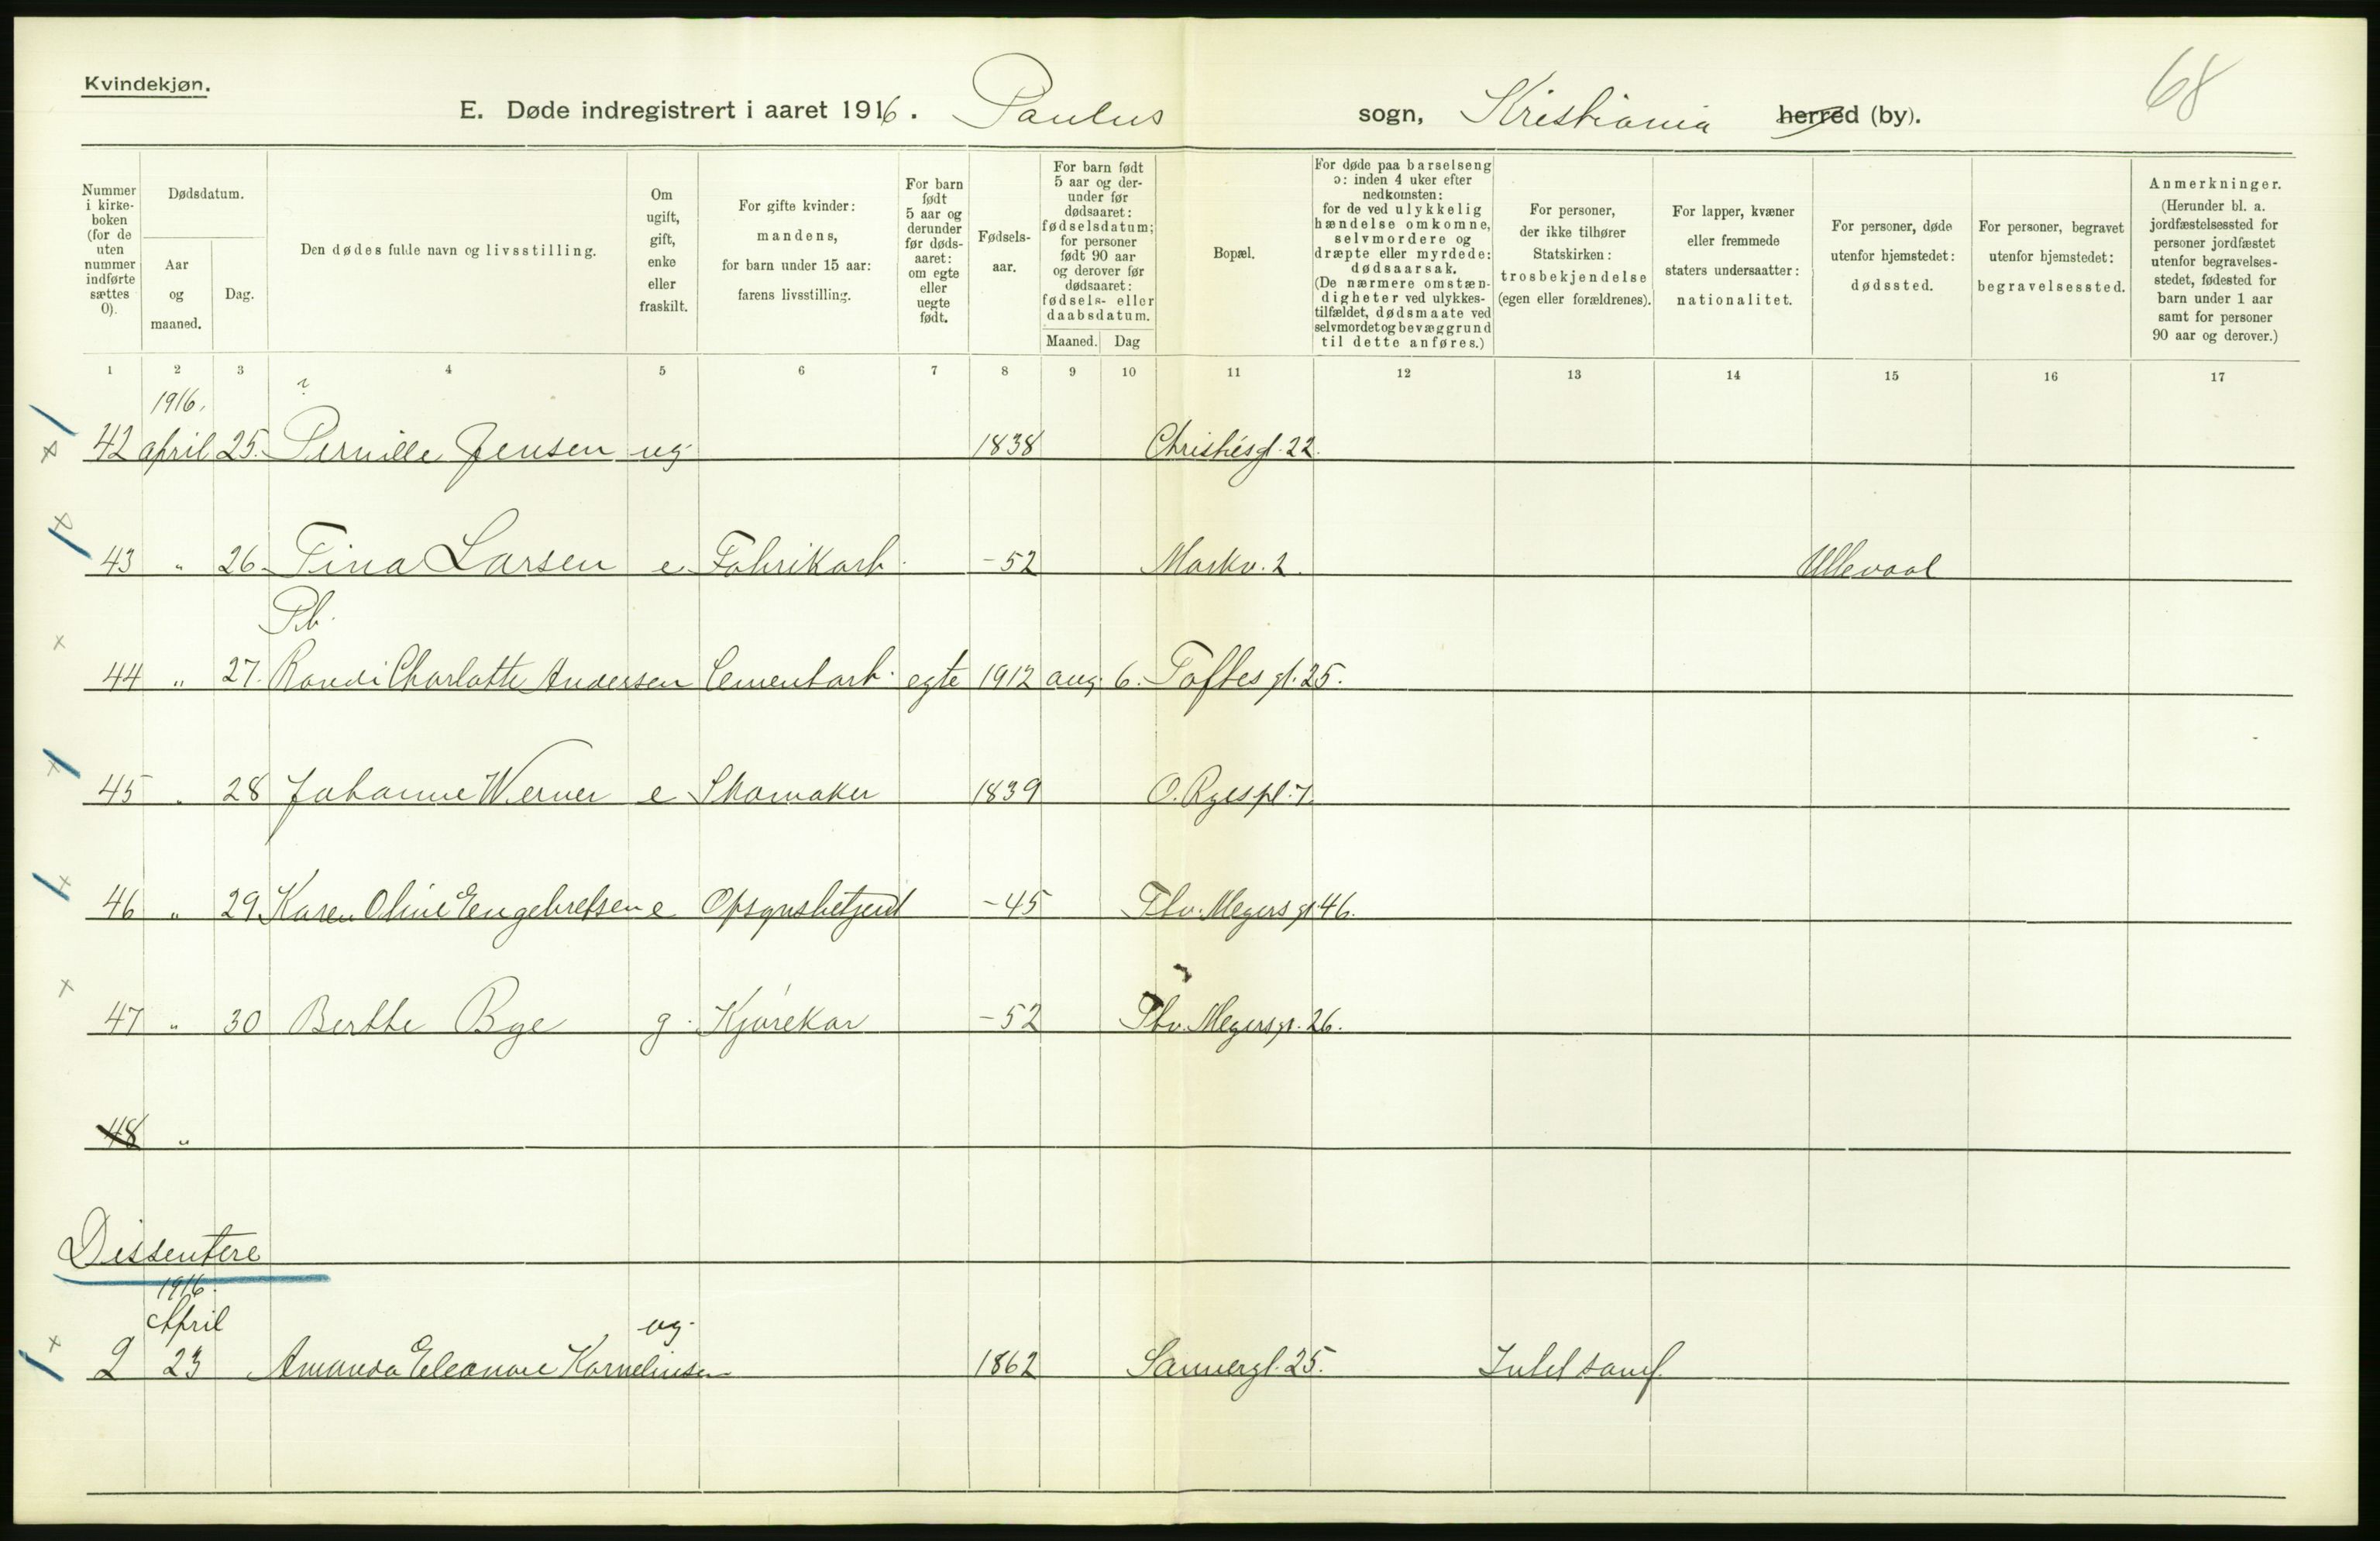 Kvindekjøn.
68
E. Døde indregistrert i aaret 1916. Paulus sogn, Kristiania herred (by).
Nummer i kirkeboken (for de uten nummer indførte sættes 0).
Dødsdatum.
Aar og maaned.
Dag.
Den dødes fulde navn og livsstilling.
Om ugift, gift, enke eller fraskilt.
For gifte kvinder: mandens, for barn under 15 aar: farens livsstilling.
For barn født 5 aar og derunder før dødsaaret: om egte eller uegte født.
Fødselsaar.
For barn født 5 aar og derunder før dødsaaret: fødselsdatum; for personer født 90 aar og derover før dødsaaret: fødsels- eller daabsdatum.
Maaned. Dag
Bopæl.
For døde paa barselseng ɔ: inden 4 uker efter nedkomsten: for de ved ulykkelig hændelse omkomne, selvmordere og dræpte eller myrdede: dødsaarsak. (De nærmere omstændigheter ved ulykkestilfældet, dødsmaate ved selvmordet og bevæggrund til dette anføres.)
For personer, der ikke tilhører Statskirken: trosbekjendelse (egen eller forældrenes).
For lapper, kvæner eller fremmede staters undersaatter: nationalitet.
For personer, døde utenfor hjemstedet: dødssted.
For personer, begravet utenfor hjemstedet: begravelsessted.
Anmerkninger. (Herunder bl. a. jordfæstelsessted for personer jordfæstet utenfor begravelsesstedet, fødested for barn under 1 aar samt for personer 90 aar og derover.)
1 2 3 4 5 6 7 8 9 10 11 12 13 14 15 16 17
1916.
42 april 25. Pernille Jensen ug. 1838 Christiesgt. 22.
43 " 26 Tina Larsen e. Fabrikarb. -52 Markv. 2. Ullevaal
Pb.
44 " 27. Randi Charlotte Andersen Cementarb. egte 1912 aug. 6. Toftes gt. 25.
45 " 28 Johanne Werner e Skomaker 1839 O. Ryes pl. 7.
46 " 29 Karen Oline Engebretsen e Opsynsbetjent -45 Thv. Meyers gt. 46.
47 " 30 Berthe Bye g. Kjørekar -52 Thv. Meyersgt. 26.
48 "
Dissentere
1916.
April ug.
2 23 Amanda Eleonore Korneliusen 1862 Sannergt. 25. Intel samf.